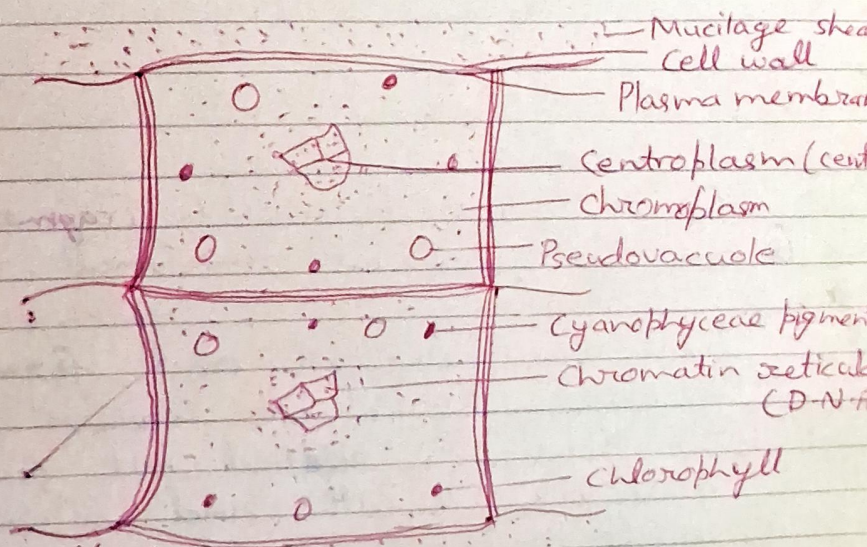 Mucilage shea
Cell wall
Plasma membra
Centroplasm (cent
Chromoplasm
Pseudovacuole
Cyanophyceae pigmen
Chromatin reticul
(D-N-A
Chlorophyll